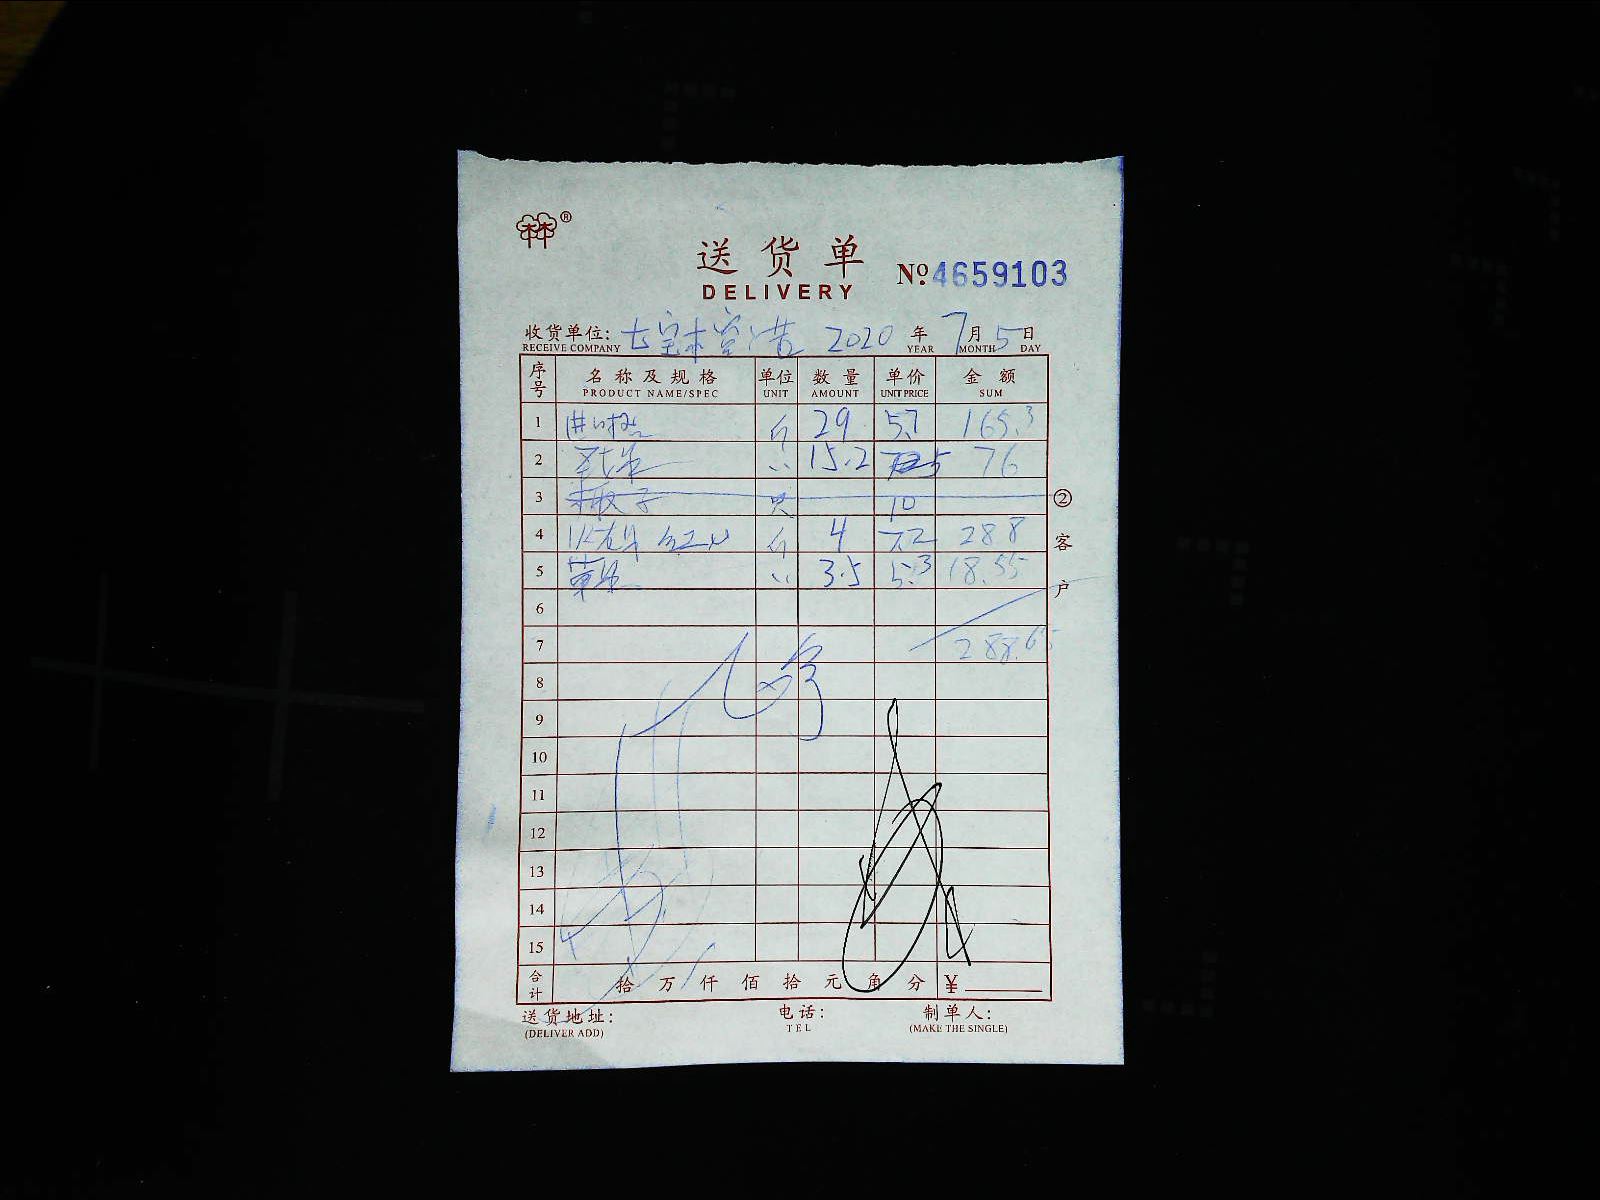 林®
送货单
DELIVERY
№ 4659103
收货单位: 七宝 2020 年 7 月 5 日
RECEIVE COMPANY YEAR MONTH DAY
序号 名称及规格 单位 数量 单价 金额
PRODUCT NAME/SPEC UNIT AMOUNT UNIT PRICE SUM
1 斤 29 5.7 165.3
2 15.2 5 76
3 10
4 斤 4 7.2 288
5 3.5 5.3 18.55
6
7 288.65
8
9
10
11
12
13
14
15
②客户
合计 拾 万 仟 佰 拾 元 角 分 ¥
送货地址: 电话: 制单人:
(DELIVER ADD) TEL (MAKE THE SINGLE)